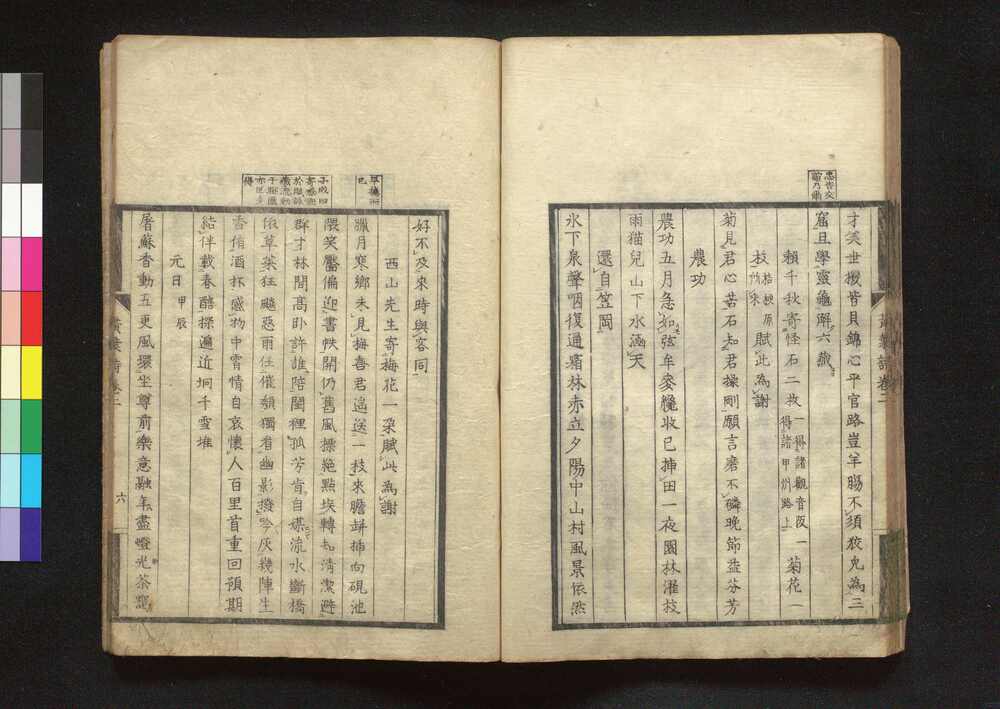 才美世授皆貝錦心平官路豈羊腸不須狡兔為三
窟且學靈龜解六藏
賴千秋寄怪石二枚一得諸觀音阪一得諸甲州路上菊花一
枝桔梗原所來賦此為謝
菊見君心苦石知君操剛願言磨不磷晚節益芬芳
農功
農功五月急如弦牟麥纔收已揷田一夜園林濯枝
雨猫兒山下水涵天
還自笠岡
氷下泉聲咽復通霜林赤立夕陽中山村風景依然
好不及來時與客同
西山先生寄梅花一朶賦此為謝
臘月寒鄉未見梅喜君遙送一枝來膽缾揷向硯池
隈笑靨偏迎書帙開仍舊風標絶點埃轉知清潔避
群才林間高臥許誰陪閨裡孤芳肯自媒流水斷橋
依草萊狂飈惡雨任催頹獨看幽影撥吟灰幾陣生
香侑酒杯感物中宵情自哀懷人百里首重回預期
結伴載春醅探遍近坰千雪堆
元日 甲辰
屠蘇香動五更風環坐尊前樂意融年盡燈光茶竈
六